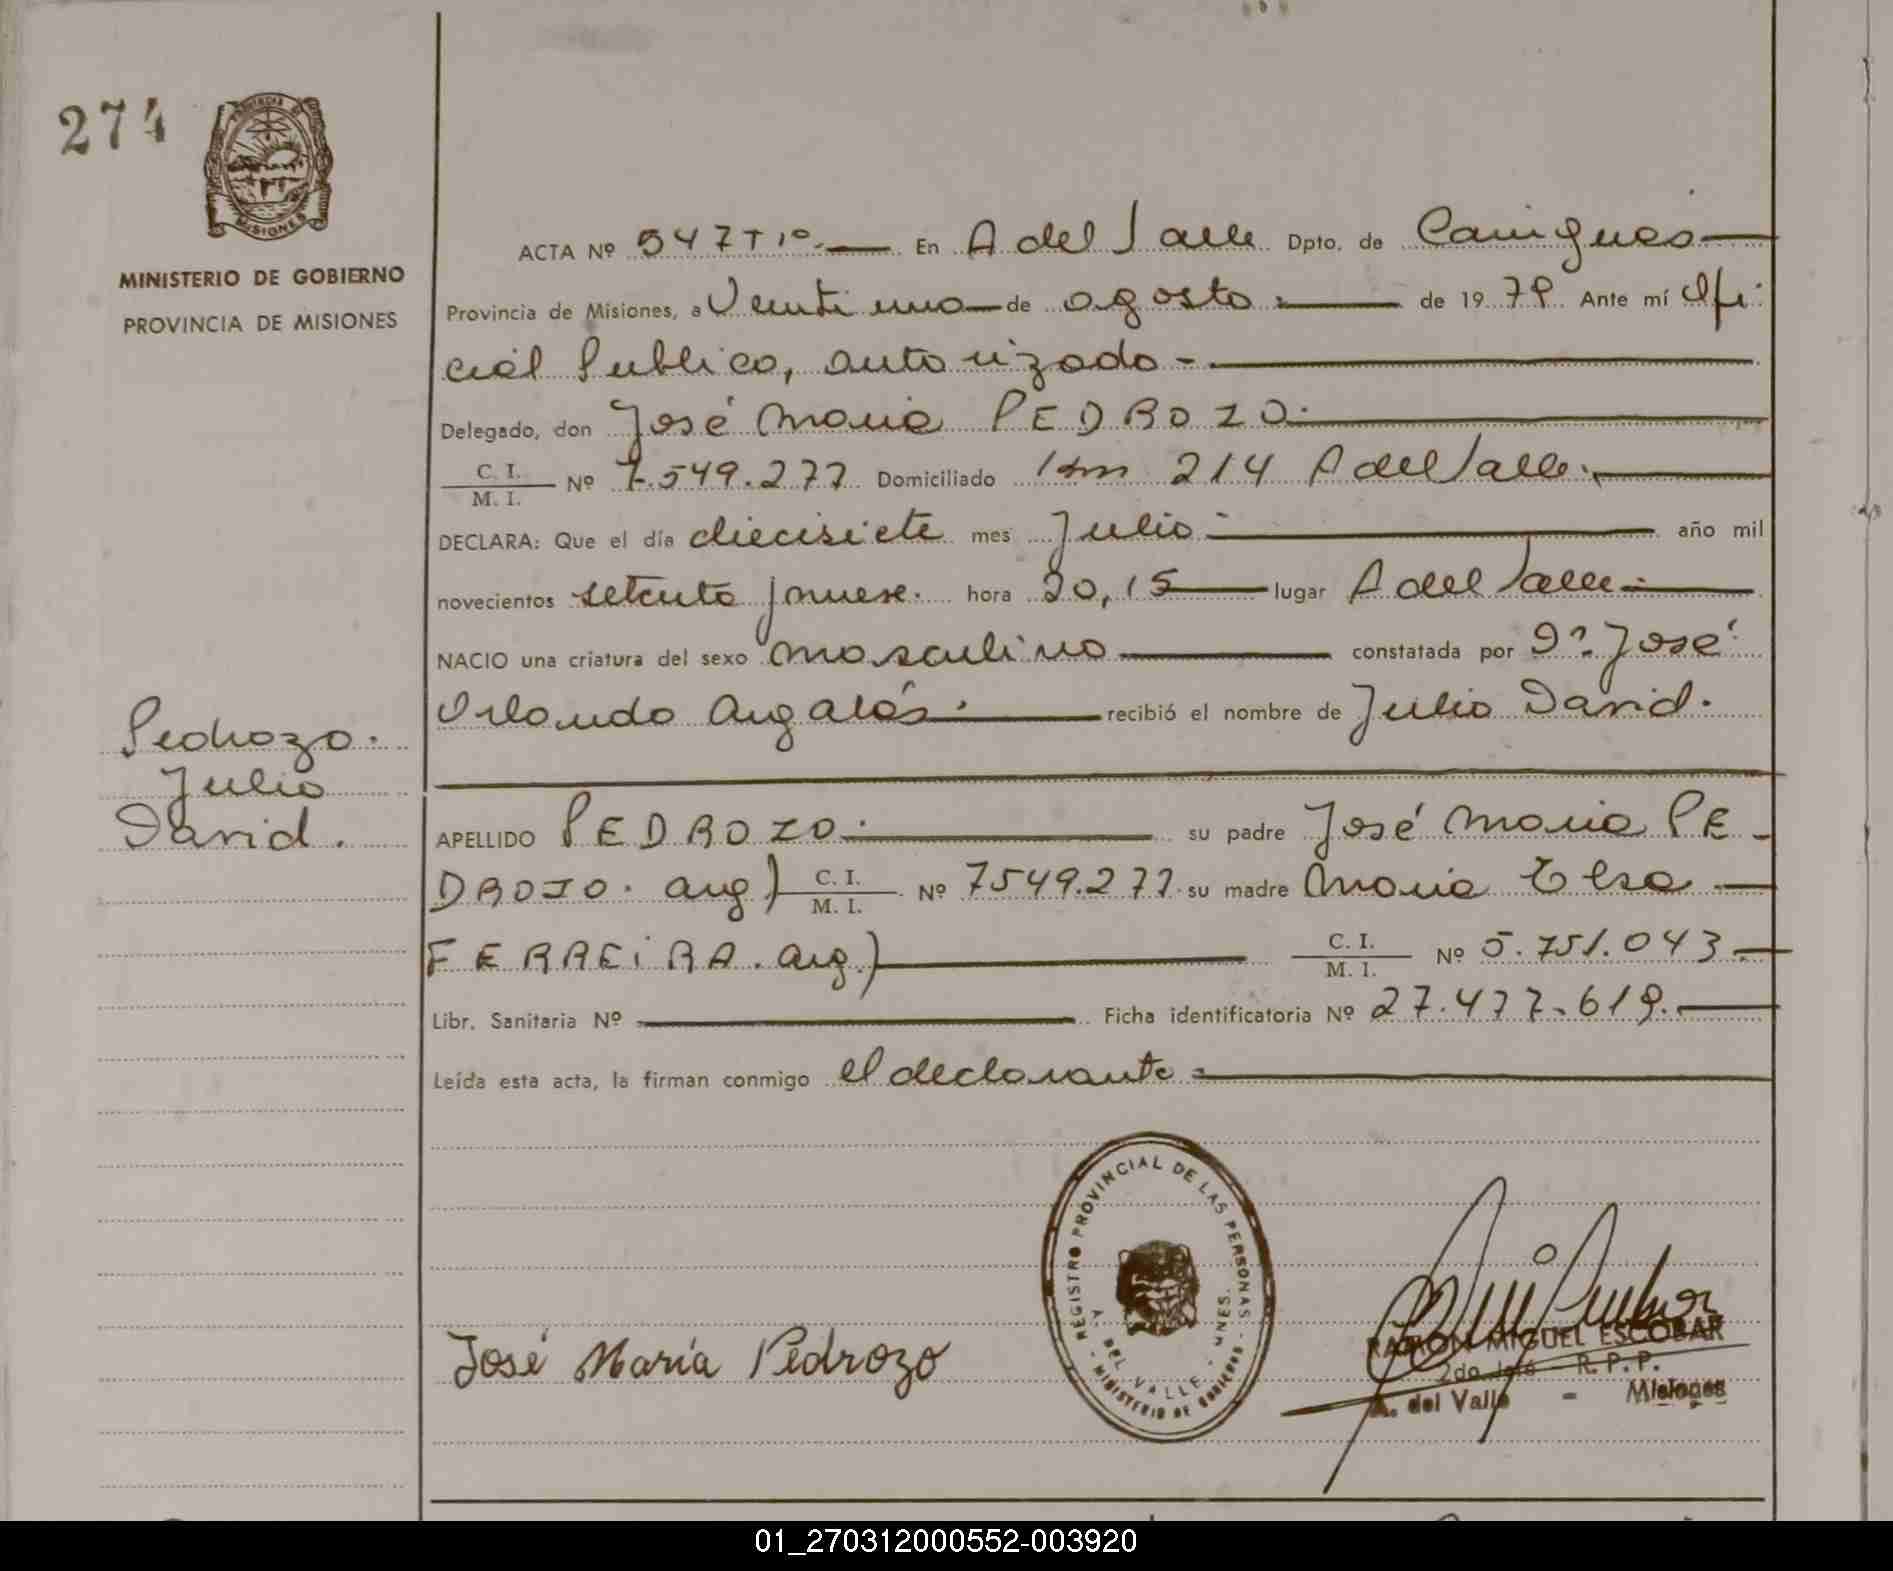 274
PROVINCIA DE
MISIONES
MINISTERIO DE GOBIERNO
PROVINCIA DE MISIONES
ACTA Nº 547 Tº 1º. En A del Valle Dpto. de Cainguás
Provincia de Misiones, a Veinti uno de agosto de 1979 Ante mí Ofi
cial Publico, autorizado -
Delegado, don José Maria PEDROZO.
C. I. / M. I. Nº 7.549.277 Domiciliado Km 214 A del Valle.
DECLARA: Que el día diecisiete mes Julio año mil
novecientos setenta y nueve. hora 20,15 lugar A del Valle
NACIO una criatura del sexo masculino constatada por Dr. José
Orlando Argalás. recibió el nombre de Julio David.
Pedrozo.
Julio
David.
APELLIDO PEDROZO. su padre José Maria PE-
DROZO. arg) C. I. / M. I. Nº 7549.277. su madre Maria Elsa
FERREIRA. arg.) C. I. / M. I. Nº 5.751.043
Libr. Sanitaria Nº Ficha identificatoria Nº 27.477.619.
Leída esta acta, la firman conmigo el declarante
REGISTRO PROVINCIAL DE LAS PERSONAS
A. DEL VALLE - MNES.
MINISTERIO DE GOBIERNO
José María Pedrozo
RAMON MIGUEL ESCOBAR
2do Jefe R. P. P.
A. del Valle - Misiones
01_270312000552-003920